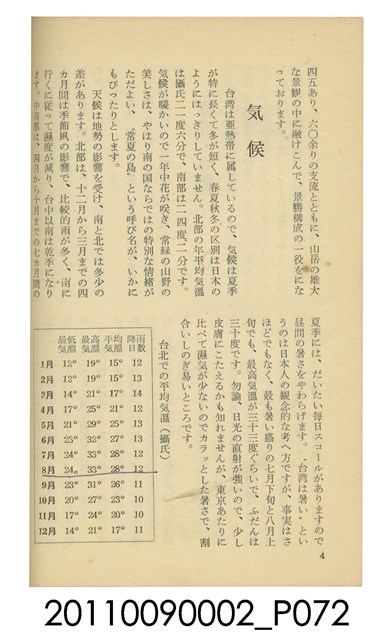 四五あり、六〇余りの支流とともに、山岳の雄大
な景観の中に融けこんで、景勝構成の一役をにな
っております。
気候
台湾は亜熱帯に属しているので、気候は夏季
が特に長くて冬が短く、春夏秋冬の区別は日本の
ようにはっきりしていません。北部の年平均気温
は攝氏二一度六分で、南部は二四度二分です。
気候が暖かいので一年中花が咲き、常緑の山野の
美しさは、やはり南の国ならではの特別な情緒が
ただよい、〝常夏の島〟という呼び名が、いかに
もぴったりとします。
天候は地勢の影響を受け、南と北では多少の
差があります。北部は、十二月から三月までの四
カ月間は季節風の影響で、比較的雨が多く、南に
行くに従って湿度が減り、台中以南は乾季になり
ます。中南部は、四月から十月までの七カ月間の
夏季には、だいたい毎日スコールがありますので
昼間の暑さをやわらげます。〝台湾は暑い〟とい
うのは日本人の観念的な考へ方ですが、事実はさ
ほどでもなく、最も暑い盛りの七月下旬と八月上
旬でも、最高気温が三十三度ぐらいで、ふだんは
三十度です。勿論、日光の直射が強いので、少し
皮膚にこたえるかも知れませんが、東京あたりに
比べて湿気が少ないのでカラッとした暑さで、割
合いしのぎ易いところです。
台北での平均気温(攝氏)
最低気温 最高気温 平均気温 降雨日数
1月 12° 19° 15° 12
2月 12° 19° 15° 13
3月 14° 21° 17° 14
4月 17° 25° 21° 12
5月 21° 29° 25° 13
6月 23° 32° 27° 13
7月 24° 33° 28° 13
8月 24° 33° 28° 12
9月 23° 31° 26° 11
10月 20° 27° 23° 10
11月 17° 24° 20° 10
12月 14° 21° 17° 11
4
20110090002_P072